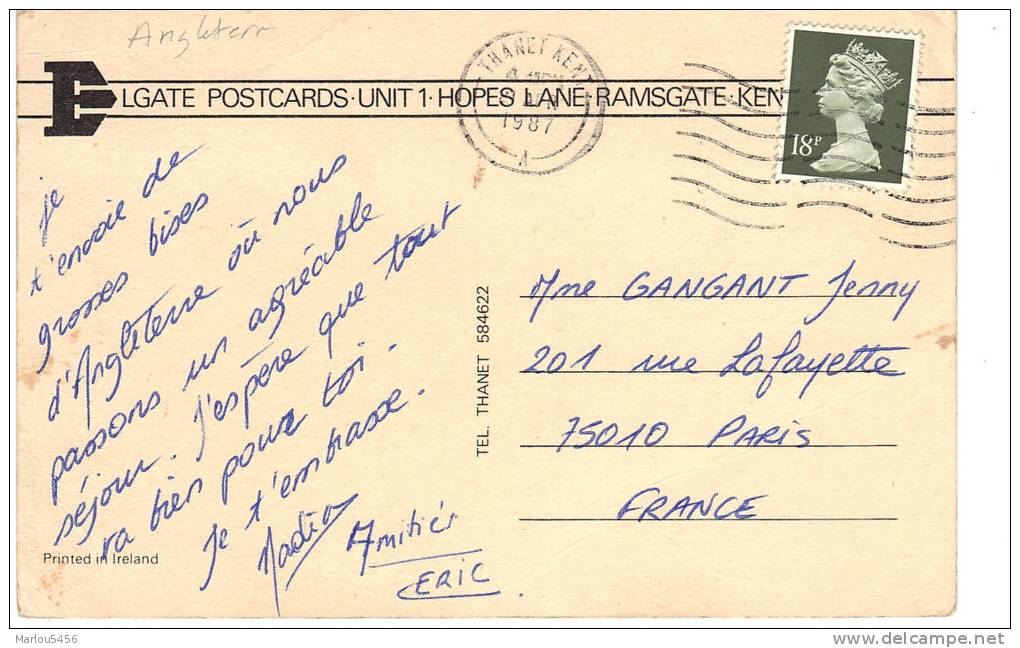 Angleterr
ELGATE POSTCARDS·UNIT 1·HOPES LANE·RAMSGATE·KEN
THANET KENT
1987
A
18P
je
t'envoie de
grosses bises
d'Angleterre où nous
passons un agréable
séjour. J'espère que tout
va bien pour toi.
Je t'embrasse.
Nadia
Amitiés
ERIC
Printed in Ireland
TEL. THANET 584622
Mme GANGANT Jenny
201 rue Lafayette
75010 PARIS
FRANCE
Marlou5456
www.delcampe.net